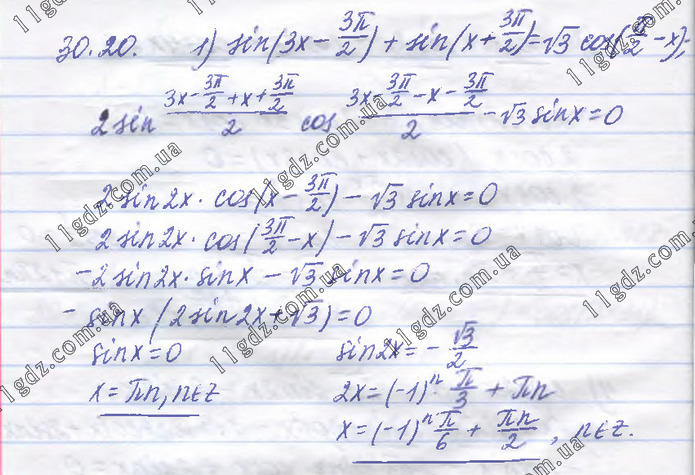 30.20. 1) sin(3x - 3π/2) + sin(x + 3π/2) = √3 cos(π/2 - x);
2 sin (3x - 3π/2 + x + 3π/2)/2 cos (3x - 3π/2 - x - 3π/2)/2 - √3 sinx = 0
2 sin2x · cos(x - 3π/2) - √3 sinx = 0
2 sin2x · cos(3π/2 - x) - √3 sinx = 0
-2 sin2x · sinx - √3 sinx = 0
- sinx (2sin2x + √3) = 0
sinx = 0 sin2x = - √3/2
x = πn, n∈Z 2x = (-1)ⁿ · π/3 + πn
x = (-1)ⁿ π/6 + πn/2, n∈Z.
11gdz.com.ua
11gdz.com.ua
11gdz.com.ua
11gdz.com.ua
11gdz.com.ua
11gdz.com.ua
11gdz.com.ua
11gdz.com.ua